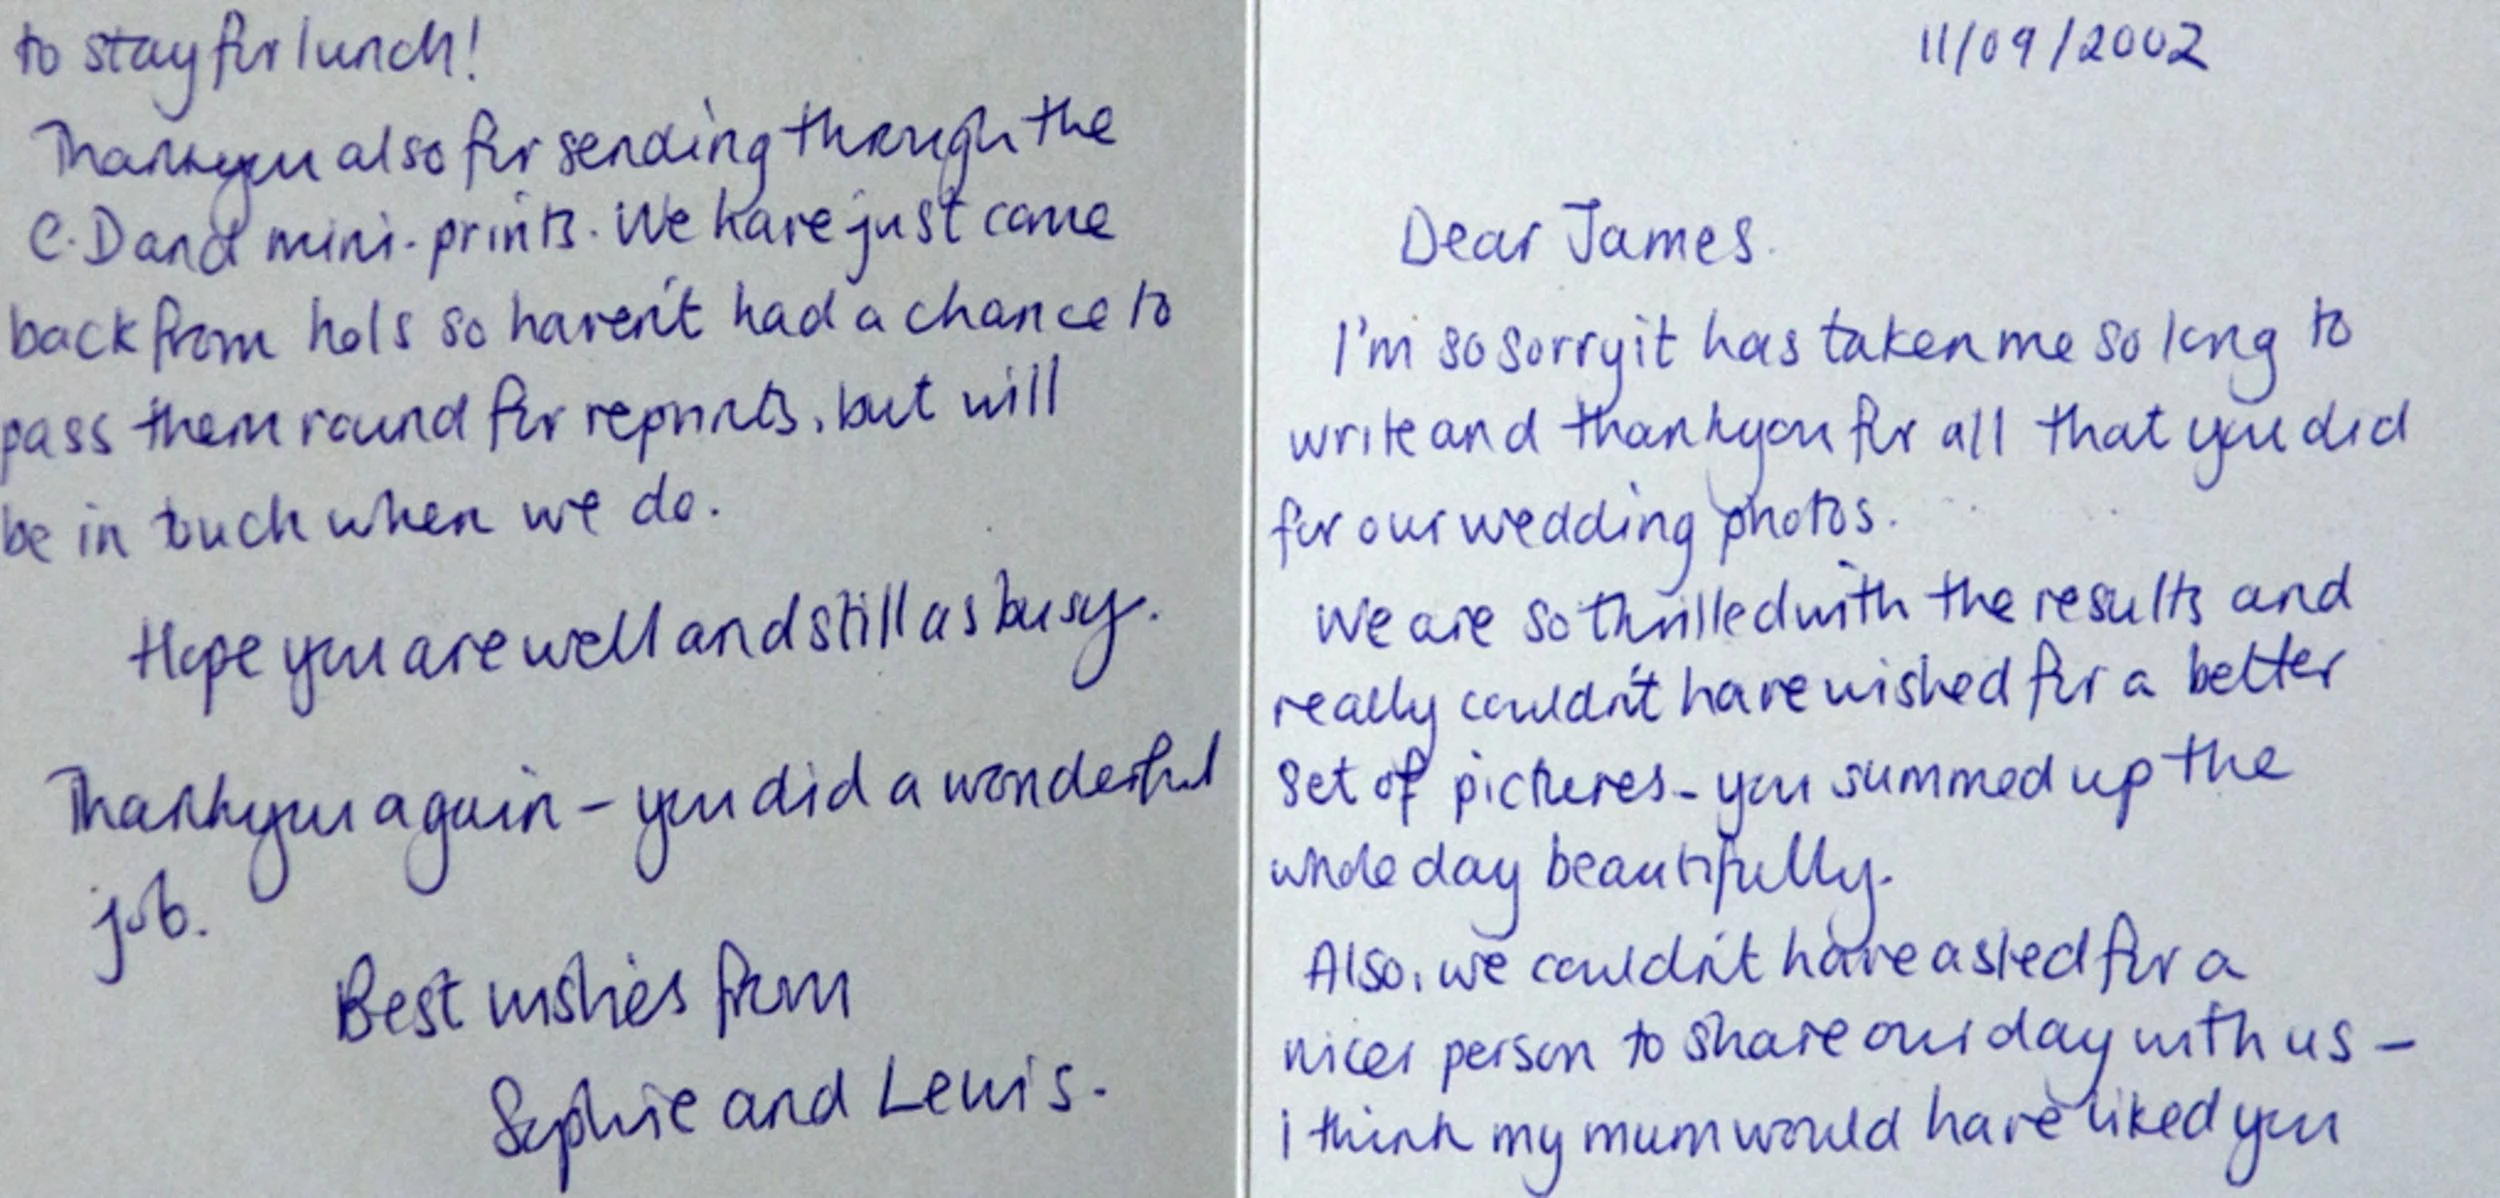 11/09/2002
Dear James.
I'm so sorry it has taken me so long to
write and thankyou for all that you did
for our wedding photos.
We are so thrilled with the results and
really couldn't have wished for a better
set of pictures - you summed up the
whole day beautifully.
Also, we couldn't have asked for a
nicer person to share our day with us -
i think my mum would have liked you
to stay for lunch!
Thankyou also for sending through the
C.D and mini-prints. We have just come
back from hols so haven't had a chance to
pass them round for reprints, but will
be in touch when we do.
Hope you are well and still as busy.
Thankyou again - you did a wonderful
job.
Best wishes from
Sophie and Lewis.